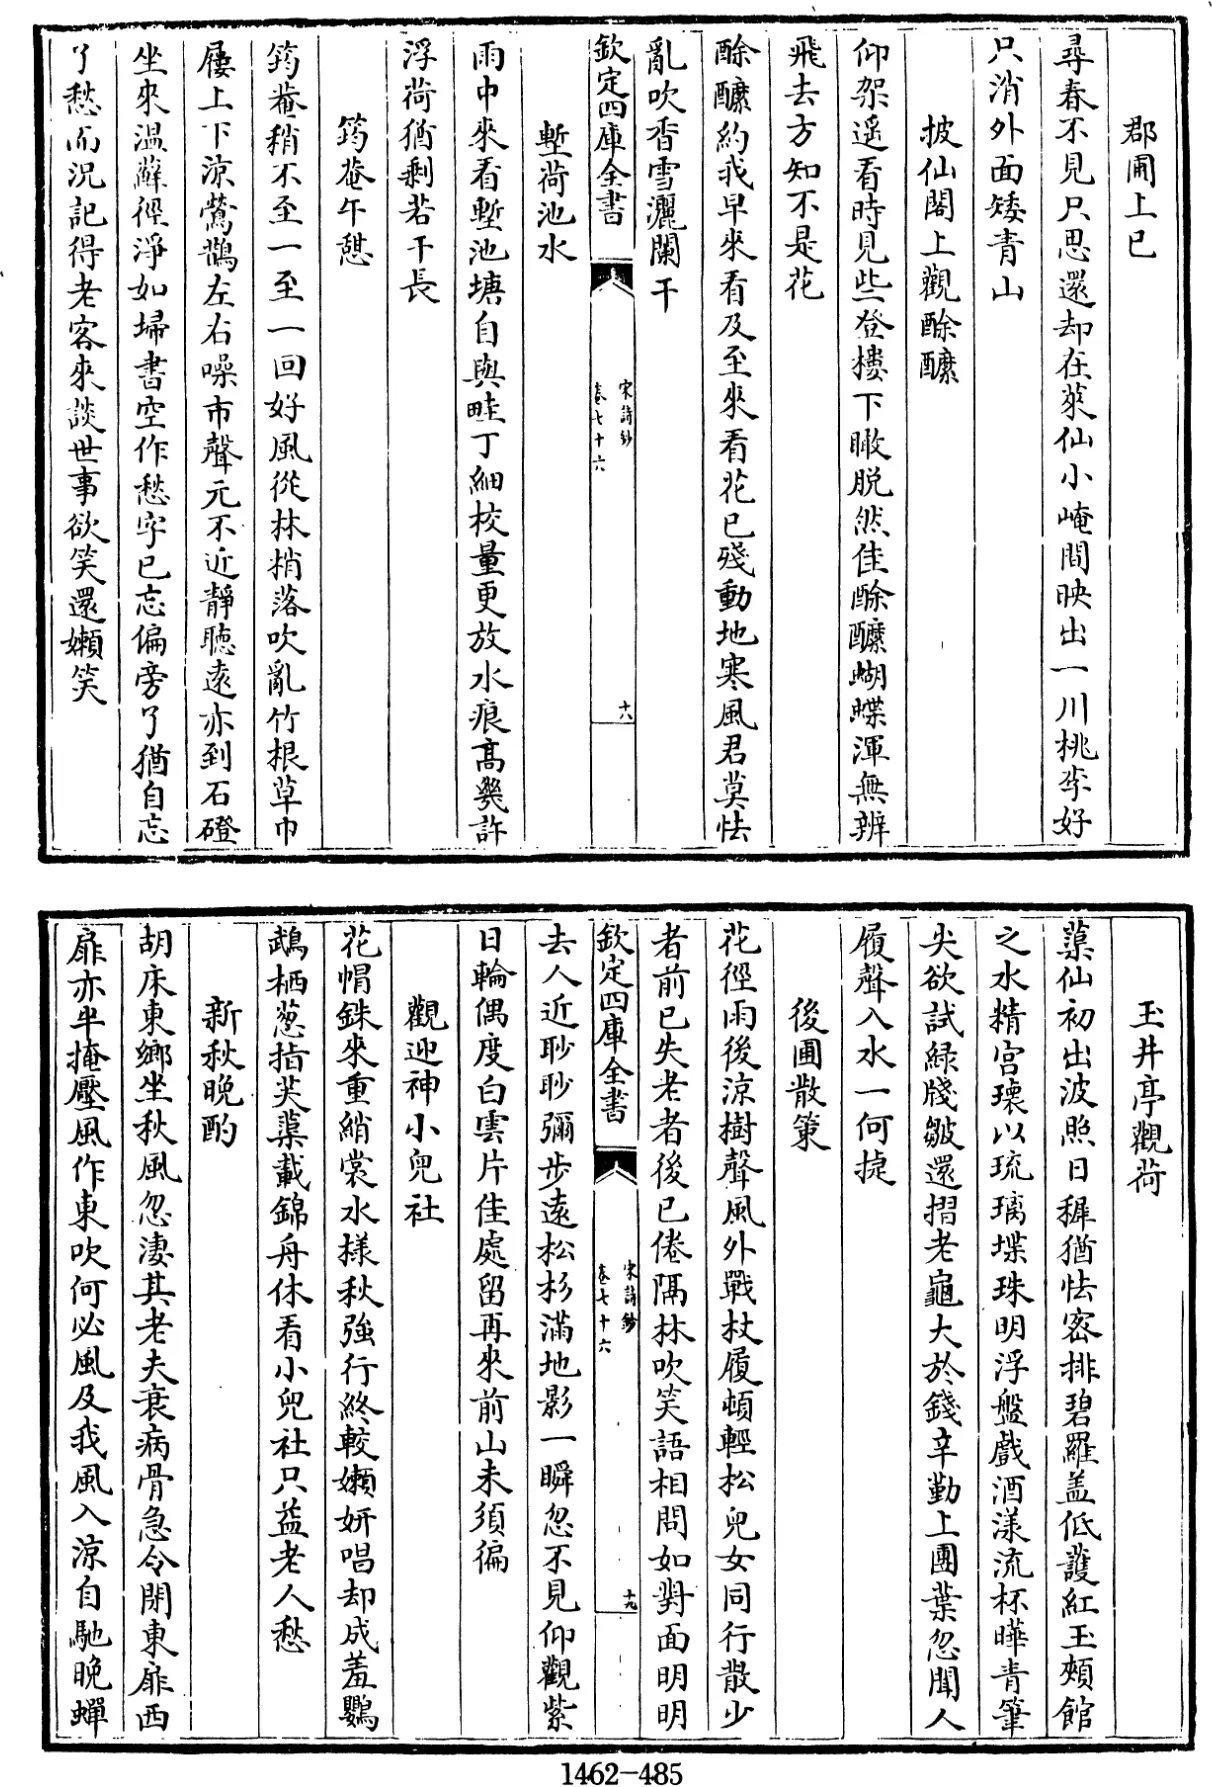 郡圃上巳
尋春不見只思還却在萊仙小崦間映出一川桃李好
只消外面矮青山
披仙閣上觀酴醾
仰架遥看時見些登樓下瞰脱然佳酴醾蝴蝶渾無辨
飛去方知不是花
酴醾約我早來看及至來看花已殘動地寒風君莫怯
亂吹香雪灑闌干
欽定四庫全書
宋詩鈔
卷七十六
十八
塹荷池水
雨中來看塹池塘自與畦丁細校量更放水痕高幾許
浮荷猶剩若干長
筠菴午憩
筠菴稍不至一至一回好風從林梢落吹亂竹根草巾
屨上下涼鶯鵲左右噪市聲元不近静聽遠亦到石磴
坐來溫蘚徑淨如埽書空作愁字已忘偏旁了猶自忘
了愁而況記得老客來談世事欲笑還嬾笑
玉井亭觀荷
蕖仙初出波照日穉猶怯密排碧羅盖低護紅玉頰館
之水精宮瓌以琉璃堞珠明浮盤戲酒漾流杯曄青筆
尖欲試緑牋皺還摺老龜大於錢辛勤上團葉忽聞人
履聲入水一何捷
後圃散策
花徑雨後涼樹聲風外戰杖履頓輕松兒女同行散少
者前已失老者後已倦隔林吹笑語相問如對面明明
欽定四庫全書
宋詩鈔
卷七十六
十九
去人近眇眇彌步遠松杉滿地影一瞬忽不見仰觀紫
日輪偶度白雲片佳處留再來前山未須徧
觀迎神小兒社
花帽銖來重綃裳水様秋強行終較嬾妍唱却成羞鸚
鵡栖葱指芙蕖載錦舟休看小兒社只益老人愁
新秋晚酌
胡床東鄉坐秋風忽淒其老夫衰病骨急令閉東扉西
扉亦半掩壓風作東吹何必風及我風入涼自馳晚蟬
1462-485